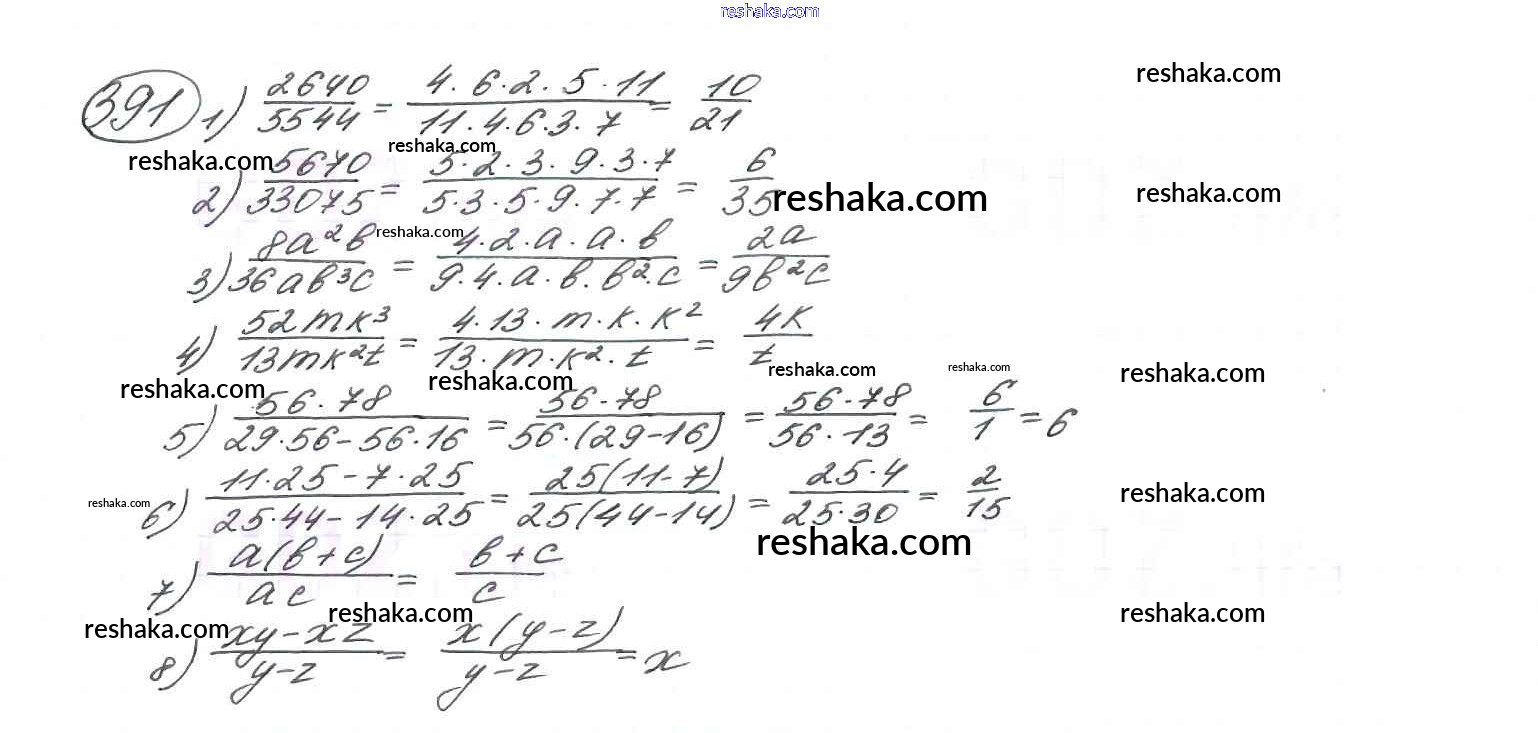 reshaka.com
391 1) 2640/5544 = 4·6·2·5·11/11·4·6·3·7 = 10/21 reshaka.com
reshaka.com reshaka.com
2) 5670/33075 = 5·2·3·9·3·7/5·3·5·9·7·7 = 6/35 reshaka.com reshaka.com
reshaka.com
3) 8a²b/36ab³c = 4·2·a·a·b/9·4·a·b·b²·c = 2a/9b²c
4) 52mk³/13mk²t = 4·13·m·k·k²/13·m·k²·t = 4k/t
reshaka.com reshaka.com reshaka.com reshaka.com reshaka.com
5) 56·78/29·56-56·16 = 56·78/56·(29-16) = 56·78/56·13 = 6/1 = 6
reshaka.com 6) 11·25-7·25/25·44-14·25 = 25(11-7)/25(44-14) = 25·4/25·30 = 2/15 reshaka.com
reshaka.com
7) a(b+c)/ac = b+c/c
reshaka.com reshaka.com reshaka.com
8) xy-xz/y-z = x(y-z)/y-z = x